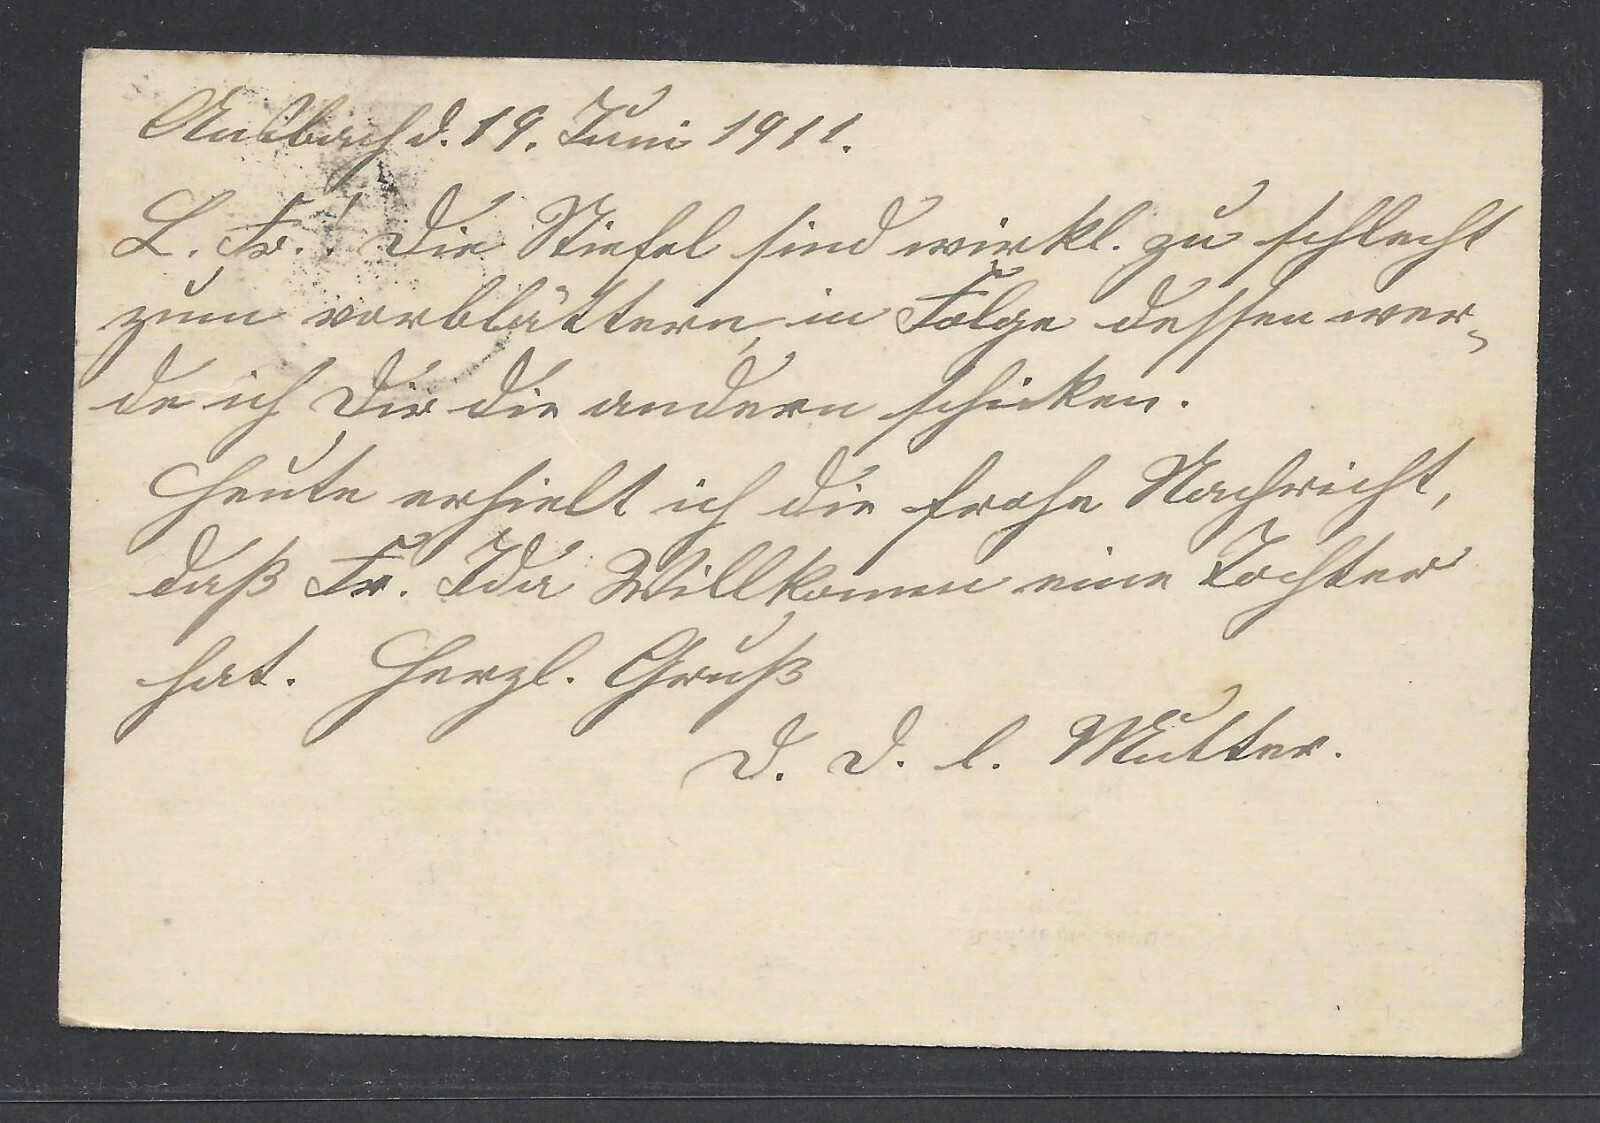 Ansbach d. 19. Juni 1911.
L. Fr.! Die Stiefel sind wirkl. zu schlecht
zum vorblättern, in Folge dessen wer-
de ich Dir die andern schicken.
Heute erhielt ich die frohe Nachricht,
daß Fr. Ida Willkomm eine Tochter
hat. Herzl. Gruß
D. D. l. Mutter.